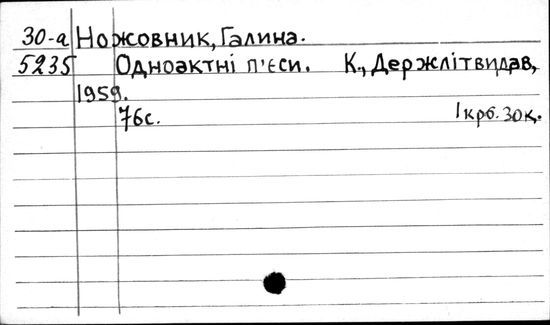 30-а Ножовник, Галина.
5235 Одноактні п'єси. К., Держлітвидав,
1959.
76с. 1крб. 30к.